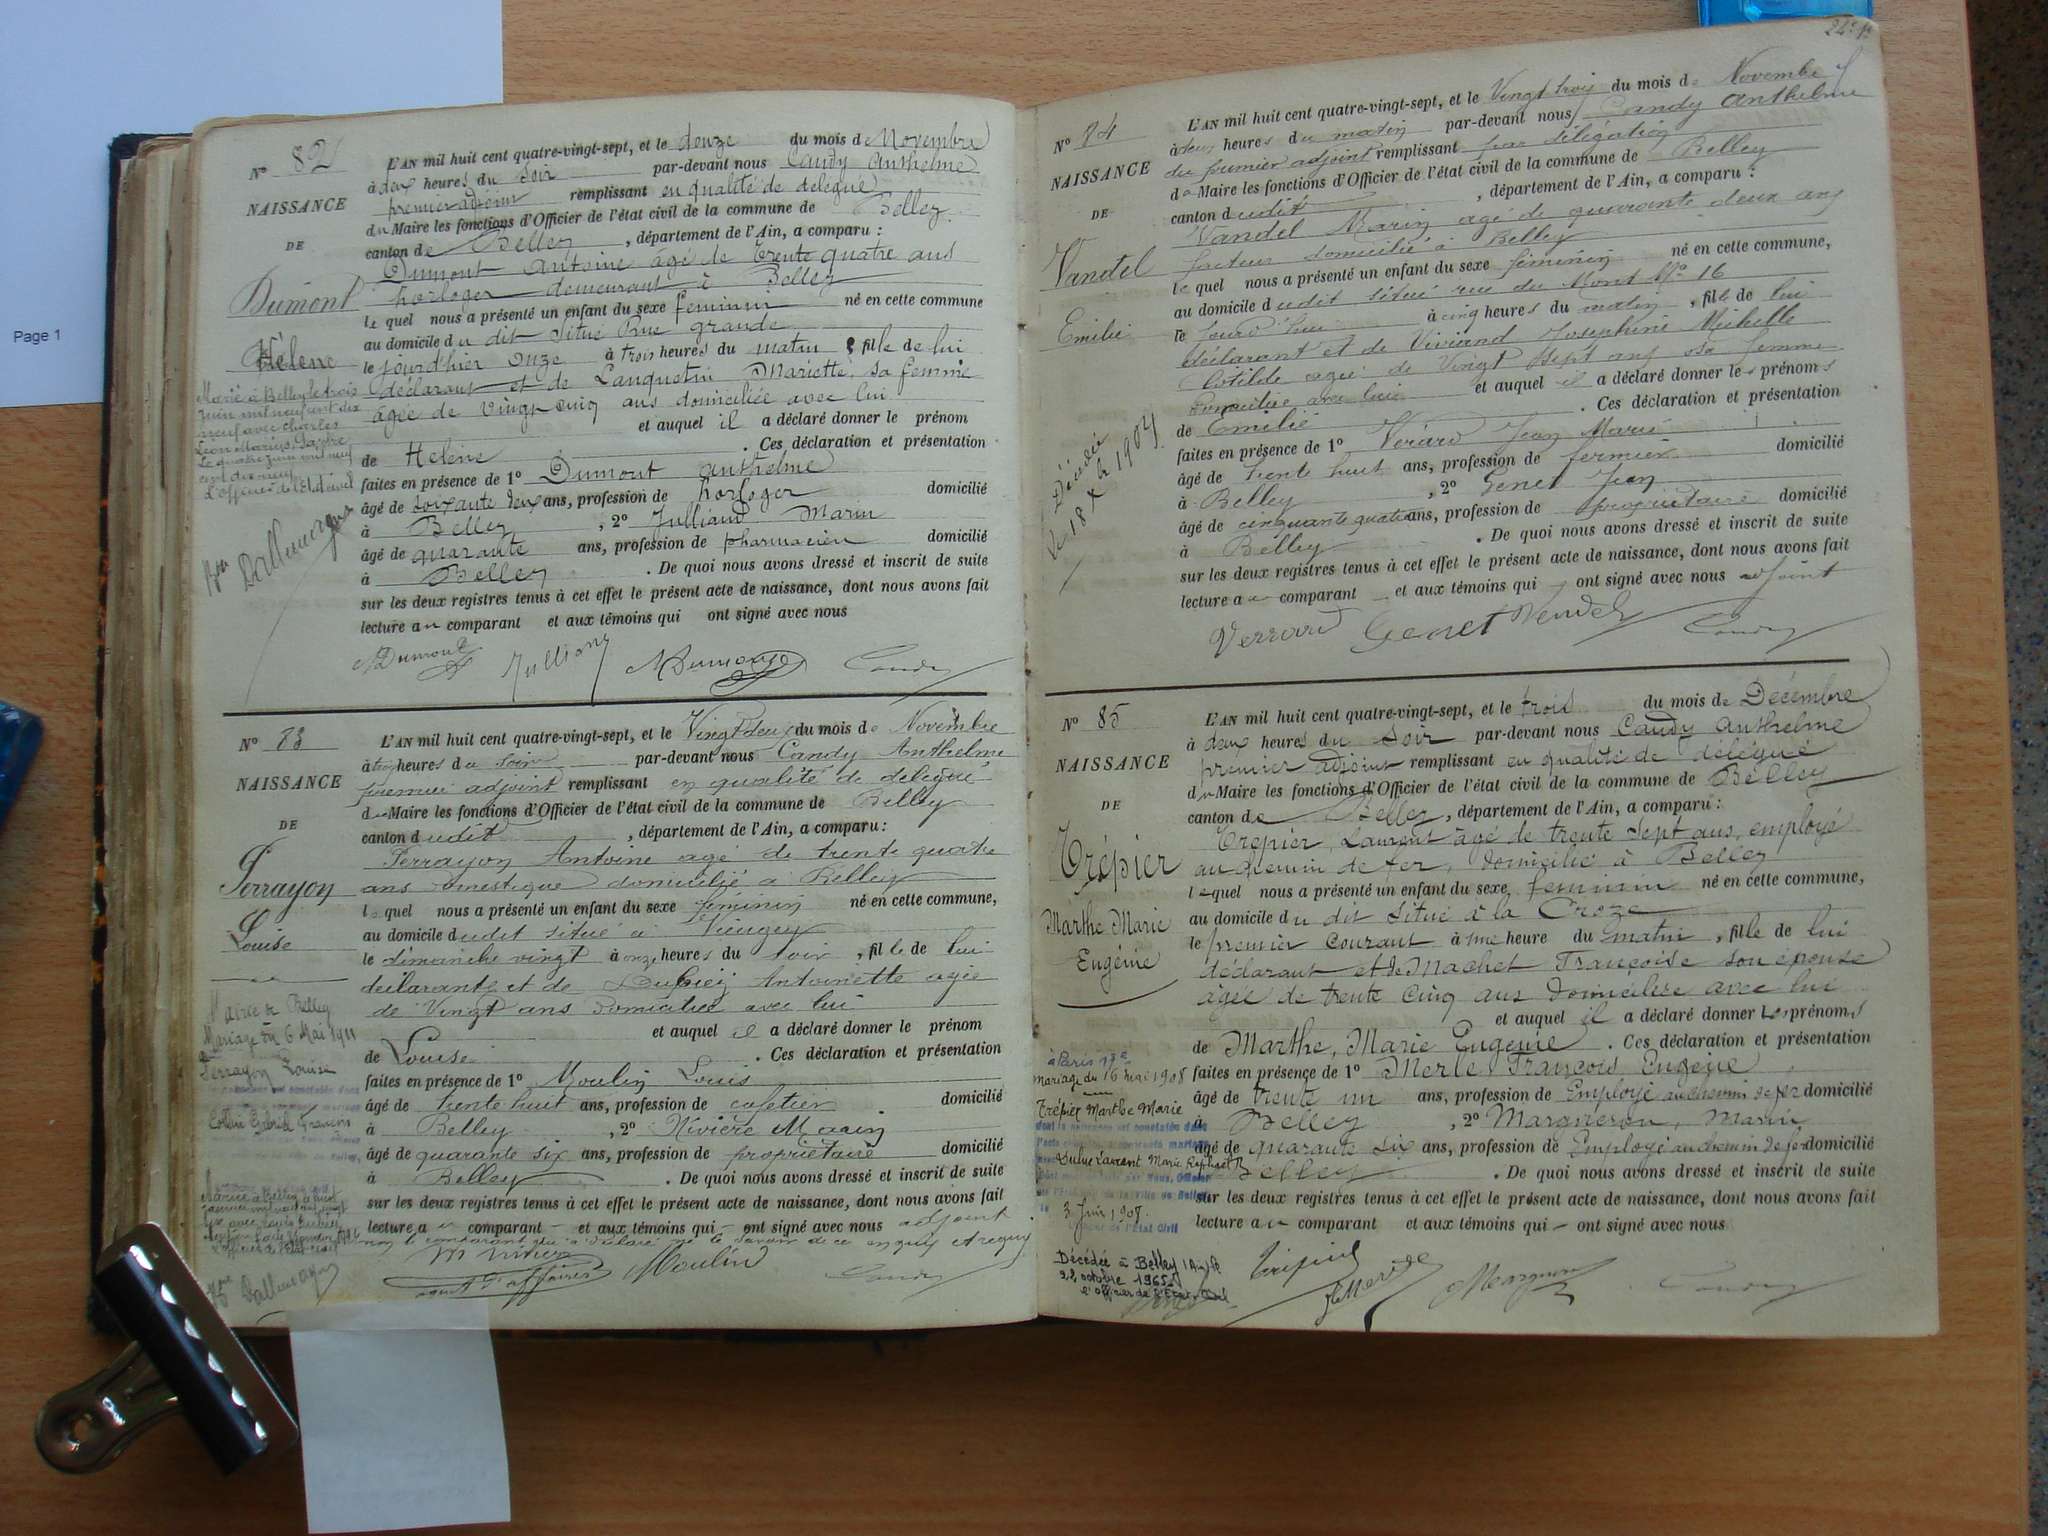 Page 1
Nº 82
NAISSANCE
DE
Dumont
Hélène
Marié à Belley le trois
juin mil neuf cent dix
neuf avec Charles
Léon Marius
Le quatre juin mil neuf
cent dix neuf
L'officier de l'état civil
L'AN mil huit cent quatre-vingt-sept, et le douze du mois de Novembre
à deux heures du soir par-devant nous Candy Anthelme
premier adjoint remplissant en qualité de délégué
du Maire les fonctions d'Officier de l'état civil de la commune de Belley
canton de Belley, département de l'Ain, a comparu :
Dumont Antoine agé de trente quatre ans
horloger demeurant à Belley
lequel nous a présenté un enfant du sexe feminin né en cette commune
au domicile du dit situé Rue grande
le jourd'hier onze à trois heures du matin, fille de lui
déclarant et de Lanquetin Mariette, sa femme
âgée de vingt cinq ans domiciliée avec lui
et auquel il a déclaré donner le prénom
de Helène. Ces déclaration et présentation
faites en présence de 1º Dumont anthelme
âgé de soixante deux ans, profession de horloger domicilié
à Belley, 2º Julliand Marin
âgé de quarante ans, profession de pharmacien domicilié
à Belley. De quoi nous avons dressé et inscrit de suite
sur les deux registres tenus à cet effet le présent acte de naissance, dont nous avons fait
lecture au comparant et aux témoins qui ont signé avec nous
Dumont Julliand Dumont Candy
Nº 83
NAISSANCE
DE
Perrayon
Louise
Mairie de Belley
Mariage du 6 Mai 1911
Perrayon Louise
L'AN mil huit cent quatre-vingt-sept, et le Vingt deux du mois de Novembre
à heures du soir par-devant nous Candy Anthelme
premier adjoint remplissant en qualité de délégué
du Maire les fonctions d'Officier de l'état civil de la commune de Belley
canton dudit, département de l'Ain, a comparu :
Perrayon Antoine agé de trente quatre
ans domestique domicilié à Belley
lequel nous a présenté un enfant du sexe féminin né en cette commune,
au domicile dudit situé à
le dimanche vingt à onze heures du soir, fille de lui
déclarant et de Antoinette agée
de Vingt ans domiciliée avec lui
et auquel il a déclaré donner le prénom
de Louise. Ces déclaration et présentation
faites en présence de 1º Moulin Louis
âgé de trente huit ans, profession de cafetier domicilié
à Belley, 2º Nivière Marin
âgé de quarante six ans, profession de propriétaire domicilié
à Belley. De quoi nous avons dressé et inscrit de suite
sur les deux registres tenus à cet effet le présent acte de naissance, dont nous avons fait
lecture au comparant et aux témoins qui ont signé avec nous adjoint
non le comparant qui a déclaré ne le savoir de ce enquis et requis
agent d'affaires Moulin Candy
Nº 84
NAISSANCE
DE
Vandel
Emilie
Décédée
Le 18 Xbre 1904
L'AN mil huit cent quatre-vingt-sept, et le Vingt trois du mois de Novembre
à deux heures du matin par-devant nous Candy Anthelme
premier adjoint remplissant par délégation
du Maire les fonctions d'Officier de l'état civil de la commune de Belley
canton dudit, département de l'Ain, a comparu :
Vandel Marin agé de quarante deux ans
facteur domicilié à Belley
lequel nous a présenté un enfant du sexe féminin né en cette commune,
au domicile dudit situé rue du Mont Nº 16
le jourd'hui à cinq heures du matin, fille de lui
déclarant et de Viviand Joséphine Michelle
Clotilde agée de Vingt sept ans sa femme
domiciliée avec lui et auquel il a déclaré donner les prénoms
de Emilie. Ces déclaration et présentation
faites en présence de 1º Jean Marie
âgé de trente huit ans, profession de fermier domicilié
à Belley, 2º Genet Jean
âgé de cinquante quatre ans, profession de propriétaire domicilié
à Belley. De quoi nous avons dressé et inscrit de suite
sur les deux registres tenus à cet effet le présent acte de naissance, dont nous avons fait
lecture au comparant et aux témoins qui ont signé avec nous adjoint
Genet Vendel Candy
Nº 85
NAISSANCE
DE
Trépier
Marthe Marie
Eugénie
à Paris 17e
Mariage du 16 mai 1908
Trépier Marthe Marie
Dulue Laurent Marie Raphaël
3 Juin 1908
Décédée à Belley (Ain) le
22 octobre 1965
l'Officier de l'Etat Civil
L'AN mil huit cent quatre-vingt-sept, et le trois du mois de Décembre
à deux heures du soir par-devant nous Candy Anthelme
premier adjoint remplissant en qualité de délégué
du Maire les fonctions d'Officier de l'état civil de la commune de Belley
canton de Belley, département de l'Ain, a comparu :
Trépier, Laurent âgé de trente sept ans, employé
au chemin de fer, domicilié à Belley
lequel nous a présenté un enfant du sexe feminin né en cette commune,
au domicile du dit situé à la Croze
le premier courant à une heure du matin, fille de lui
déclarant et de Machet Françoise son épouse
âgée de trente cinq ans domiciliée avec lui
et auquel il a déclaré donner les prénoms
de Marthe, Marie Eugénie. Ces déclaration et présentation
faites en présence de 1º Merle François Eugène
âgé de trente un ans, profession de Employé au chemin de fer domicilié
à Belley, 2º Margueron, Marin
âgé de quarante six ans, profession de Employé au chemin de fer domicilié
à Belley. De quoi nous avons dressé et inscrit de suite
sur les deux registres tenus à cet effet le présent acte de naissance, dont nous avons fait
lecture au comparant et aux témoins qui ont signé avec nous
Trépier Merle Margueron Candy